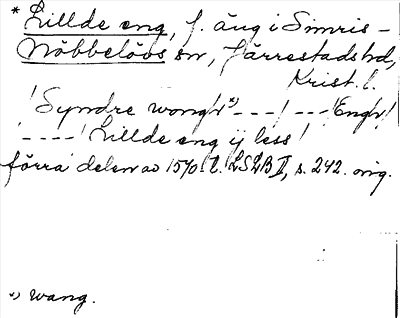 * Lillde eng, f. äng i Simris-
Nöbbelövs sn, Järrestads hd,
Krist. l.
! Syndre wongh *) _ _ _ ! _ _ _ ! Engh !
_ _ _ _ ! Lillde eng ij less !
förra delen av 1570-t. LSLB II, s. 242. orig.
*) wang.